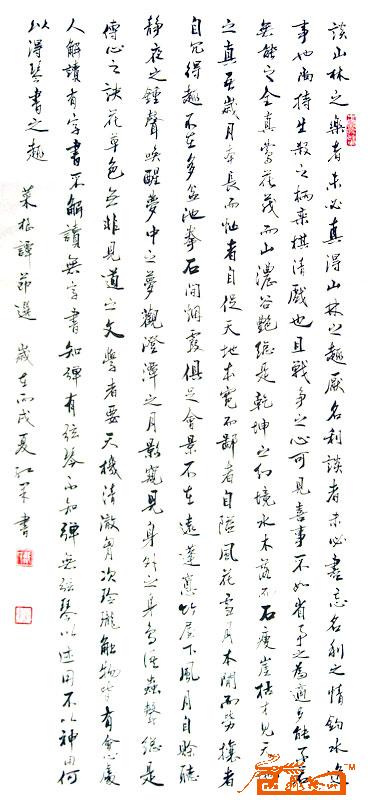 談山林之樂者未必真得山林之趣厭名利談者未必盡忘名利之情釣水逸
事也尚持生殺之柄棊棋清戲也且戰爭之心可見喜事不如省事之為適多能不若
無能之全真鶯花茂而山濃谷艷總是乾坤之幻境水木落而石瘦崖枯才見天
之真吾歲月本長而忙者自促天地本寬而鄙者自隘風花雪月本閒而勞攘者
自冗得趣不在多盆池拳石間烟霞俱足會景不在遠蓬窗竹屋下風月自賒聽
靜夜之鐘聲喚醒夢中之夢觀澄潭之月影窺見身外之身鳥語蟲聲總是
傳心之訣花草色無非見道之文學者要天機清澈胸次玲瓏觸物皆有會心處
人解讀有字書不解讀無字書知彈有弦琴不知彈無弦琴以迹用不以神用何
以得琴書之趣
菜根譚節選 歲在丙戌夏江 書